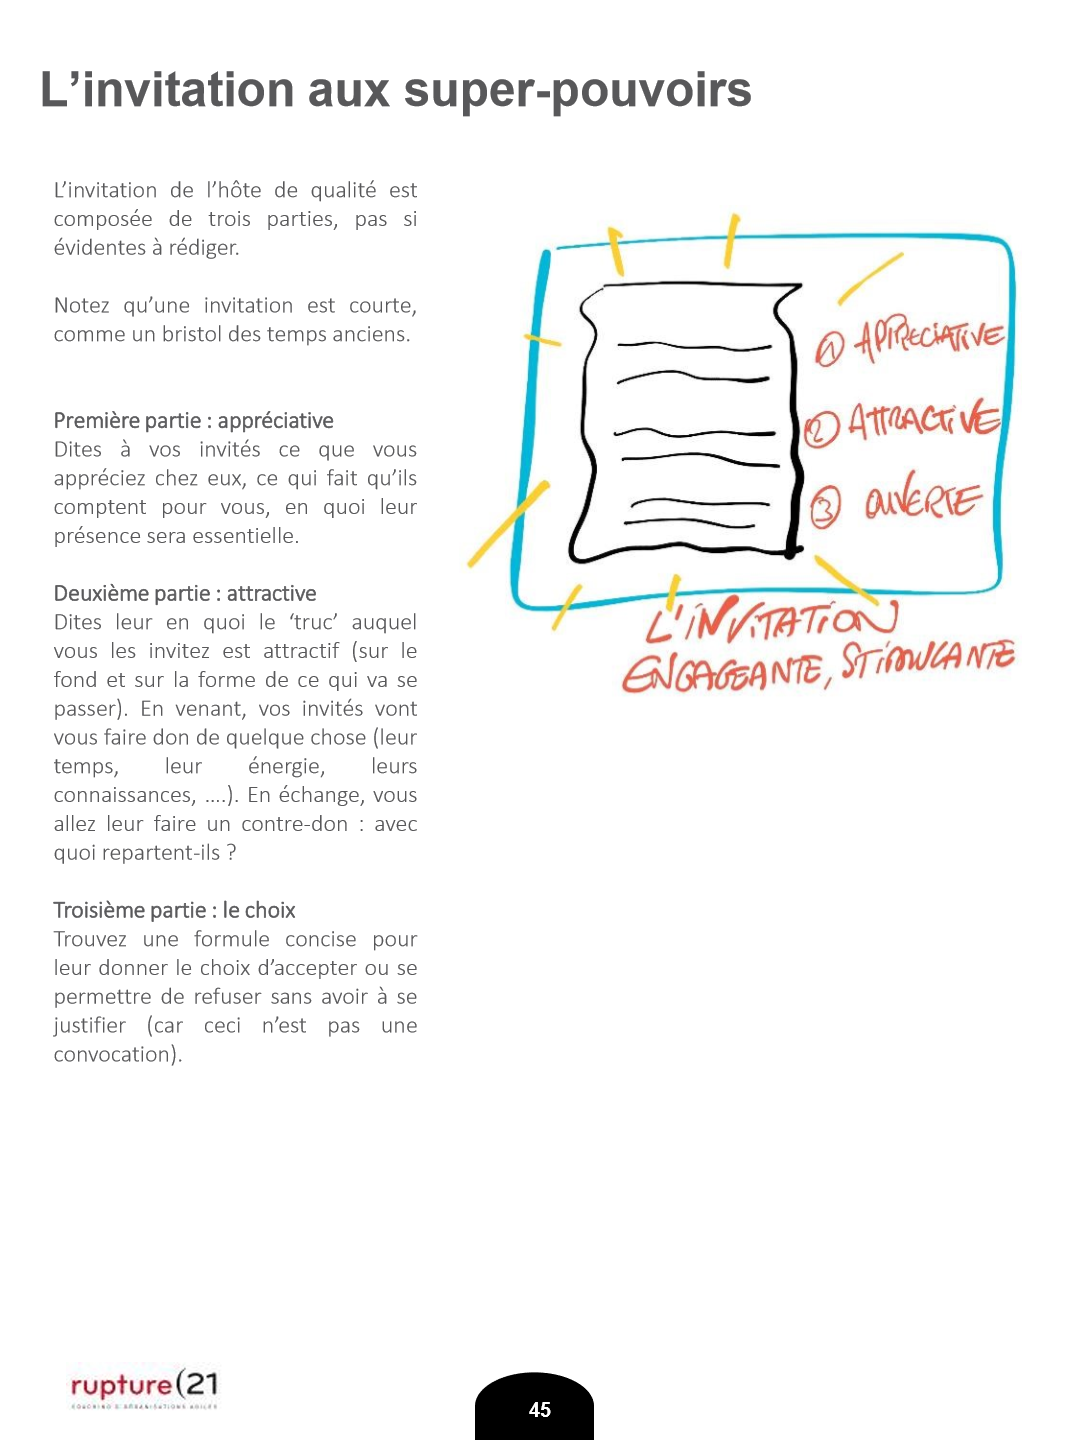 L’invitation aux super-pouvoirs
L’invitation de l’hôte de qualité est
composée de trois parties, pas si
évidentes à rédiger.
Notez qu’une invitation est courte,
comme un bristol des temps anciens.
Première partie : appréciative
Dites à vos invités ce que vous
appréciez chez eux, ce qui fait qu’ils
comptent pour vous, en quoi leur
présence sera essentielle.
Deuxième partie : attractive
Dites leur en quoi le ‘truc’ auquel
vous les invitez est attractif (sur le
fond et sur la forme de ce qui va se
passer). En venant, vos invités vont
vous faire don de quelque chose (leur
temps, leur énergie, leurs
connaissances, ….). En échange, vous
allez leur faire un contre-don : avec
quoi repartent-ils ?
Troisième partie : le choix
Trouvez une formule concise pour
leur donner le choix d’accepter ou se
permettre de refuser sans avoir à se
justifier (car ceci n’est pas une
convocation).
1 APPRECIATIVE
2 ATTRACTIVE
3 OUVERTE
L'INVITATION
ENGAGEANTE, STIMULANTE
rupture(21
COACHING D'ORGANISATIONS AGILES
45